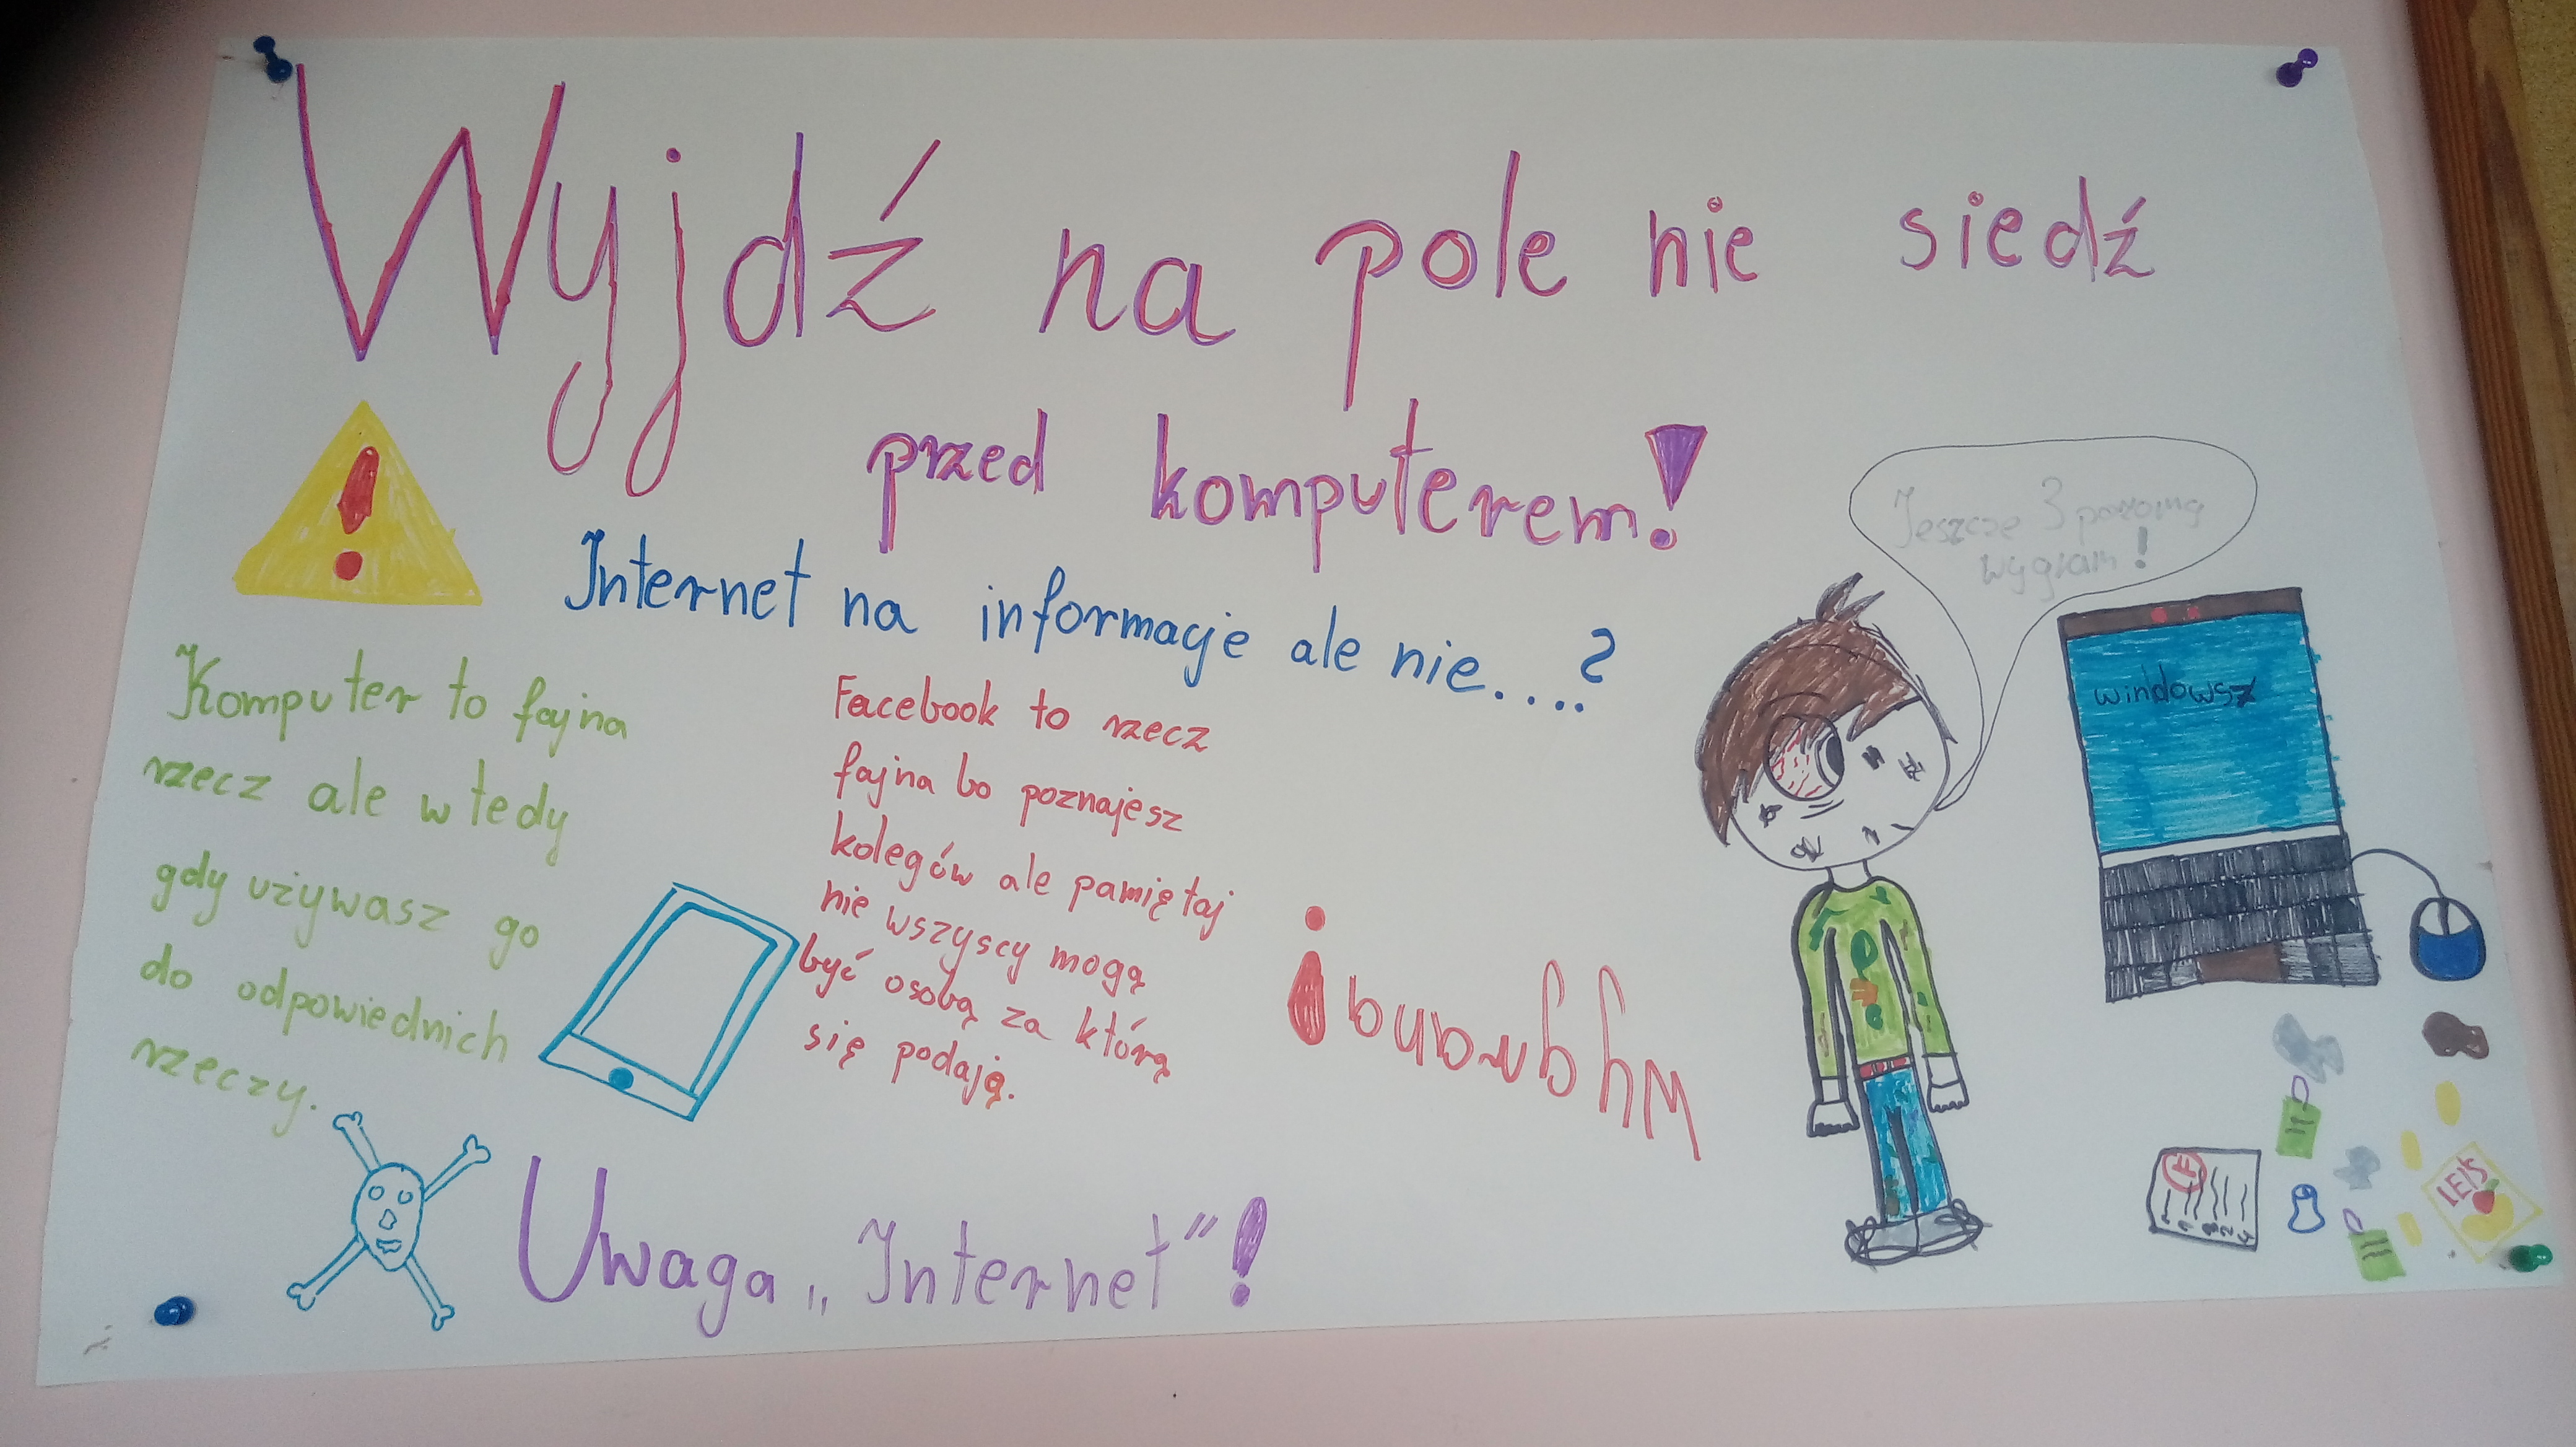 Wyjdź na pole nie siedź
przed komputerem!
Internet na informacje ale nie....?
Jeszcze 3 poziomy
wygram!
windowsz
Komputer to fajna
rzecz ale wtedy
gdy używasz go
do odpowiednich
rzeczy.
Facebook to rzecz
fajna bo poznajesz
kolegów ale pamiętaj
nie wszyscy mogą
być osobą za którą
się podają.
Wygrana!
Uwaga „Internet"!
LEIS